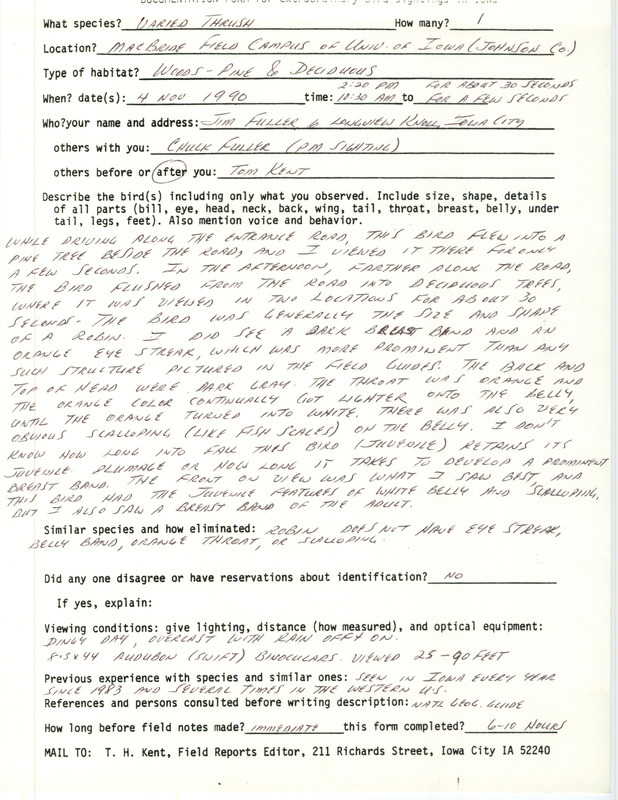 DOCUMENTATION FORM for Extraordinary Bird Sightings in Iowa
What species? VARIED THRUSH How many? 1
Location? MACBRIDE FIELD CAMPUS OF UNIV. OF IOWA (JOHNSON CO.)
Type of habitat? WOODS - PINE & DECIDUOUS
2:20 PM FOR ABOUT 30 SECONDS
When? date(s): 4 NOV 1990 time: 10:30 AM to FOR A FEW SECONDS
Who?your name and address: JIM FULLER 6 LONGVIEW KNOLL, IOWA CITY
others with you: CHUCK FULLER (PM SIGHTING)
others before or after you: TOM KENT
Describe the bird(s) including only what you observed. Include size, shape, details
of all parts (bill, eye, head, neck, back, wing, tail, throat, breast, belly, under
tail, legs, feet). Also mention voice and behavior.
WHILE DRIVING ALONG THE ENTRANCE ROAD, THIS BIRD FLEW INTO A
PINE TREE BESIDE THE ROAD, AND I VIEWED IT THERE FOR ONLY
A FEW SECONDS. IN THE AFTERNOON, FARTHER ALONG THE ROAD,
THE BIRD FLUSHED FROM THE ROAD INTO DECIDUOUS TREES,
WHERE IT WAS VIEWED IN TWO LOCATIONS FOR ABOUT 30
SECONDS. THE BIRD WAS GENERALLY THE SIZE AND SHAPE
OF A ROBIN. I DID SEE A DARK BREAST BAND AND AN
ORANGE EYE STREAK, WHICH WAS MORE PROMINENT THAN ANY
SUCH STRUCTURE PICTURED IN THE FIELD GUIDES. THE BACK AND
TOP OF HEAD WERE DARK GRAY. THE THROAT WAS ORANGE AND
THE ORANGE COLOR CONTINUALLY GOT LIGHTER ONTO THE BELLY,
UNTIL THE ORANGE TURNED INTO WHITE. THERE WAS ALSO VERY
OBVIOUS SCALLOPING (LIKE FISH SCALES) ON THE BELLY. I DON'T
KNOW HOW LONG INTO FALL THIS BIRD (JUVENILE) RETAINS ITS
JUVENILE PLUMAGE OR HOW LONG IT TAKES TO DEVELOP A PROMINENT
BREAST BAND. THE FRONT ON VIEW WAS WHAT I SAW BEST AND
THIS BIRD HAD THE JUVENILE FEATURES OF WHITE BELLY AND SCALLOPING,
BUT I ALSO SAW A BREAST BAND OF THE ADULT.
Similar species and how eliminated: ROBIN DOES NOT HAVE EYE STREAK,
BELLY BAND, ORANGE THROAT, OR SCALLOPING.
Did any one disagree or have reservations about identification? NO
If yes, explain:
Viewing conditions: give lighting, distance (how measured), and optical equipment:
DINGY DAY, OVERCAST WITH RAIN OFF & ON.
8.5x44 AUDUBON (SWIFT) BINOCULARS. VIEWED 25-90 FEET
Previous experience with species and similar ones: SEEN IN IOWA EVERY YEAR
SINCE 1983 AND SEVERAL TIMES IN THE WESTERN U.S.
References and persons consulted before writing description: NAT'L GEOG. GUIDE
How long before field notes made? IMMEDIATE this form completed? 6-10 HOURS
MAIL TO: T. H. Kent, Field Reports Editor, 211 Richards Street, Iowa City IA 52240